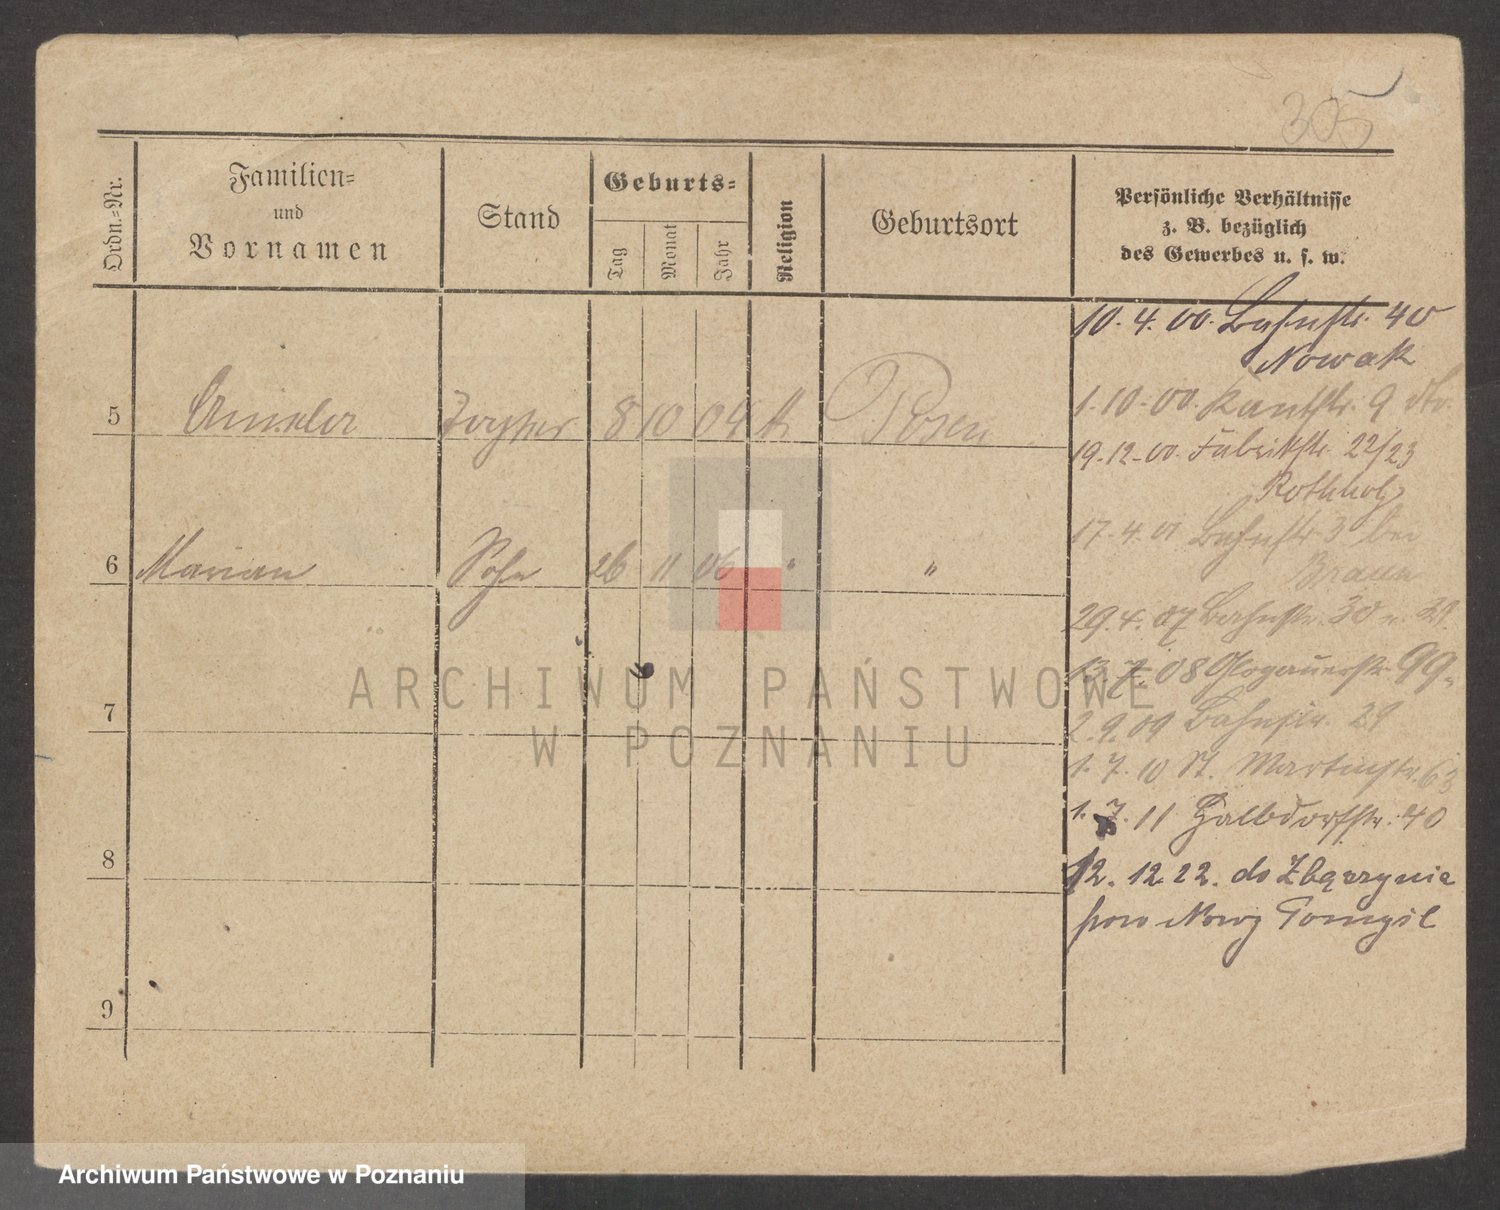 305
Ordn.-Nr.
Familien-
und
Vornamen
Stand
Geburts-
Tag
Monat
Jahr
Religion
Geburtsort
Persönliche Verhältnisse
z. B. bezüglich
des Gewerbes u. s. w.
10. 4. 00. Bahnstr. 40
Nowak
1. 10. 00. Kantstr. 9
19. 12. 00. Fabrikstr. 22/23
Rothholz
17. 4. 01 Bahnstr 3 bei
Braun
29. 4. 07 Bahnstr. 30 u. 29.
13. 7. 08 Glogauerstr. 99.
2. 9. 09 Bahnstr. 29
1. 7. 10 St. Martinstr. 63
1. 7. 11 Halbdorfstr. 40
12. 12. 22. do Zbąszynia
pow Nowy Tomyśl
5 8 10 04 k Posen
6 Marian Sohn 26 11 06 " "
7
8
9
ARCHIWUM PAŃSTWOWE
W POZNANIU
Archiwum Państwowe w Poznaniu